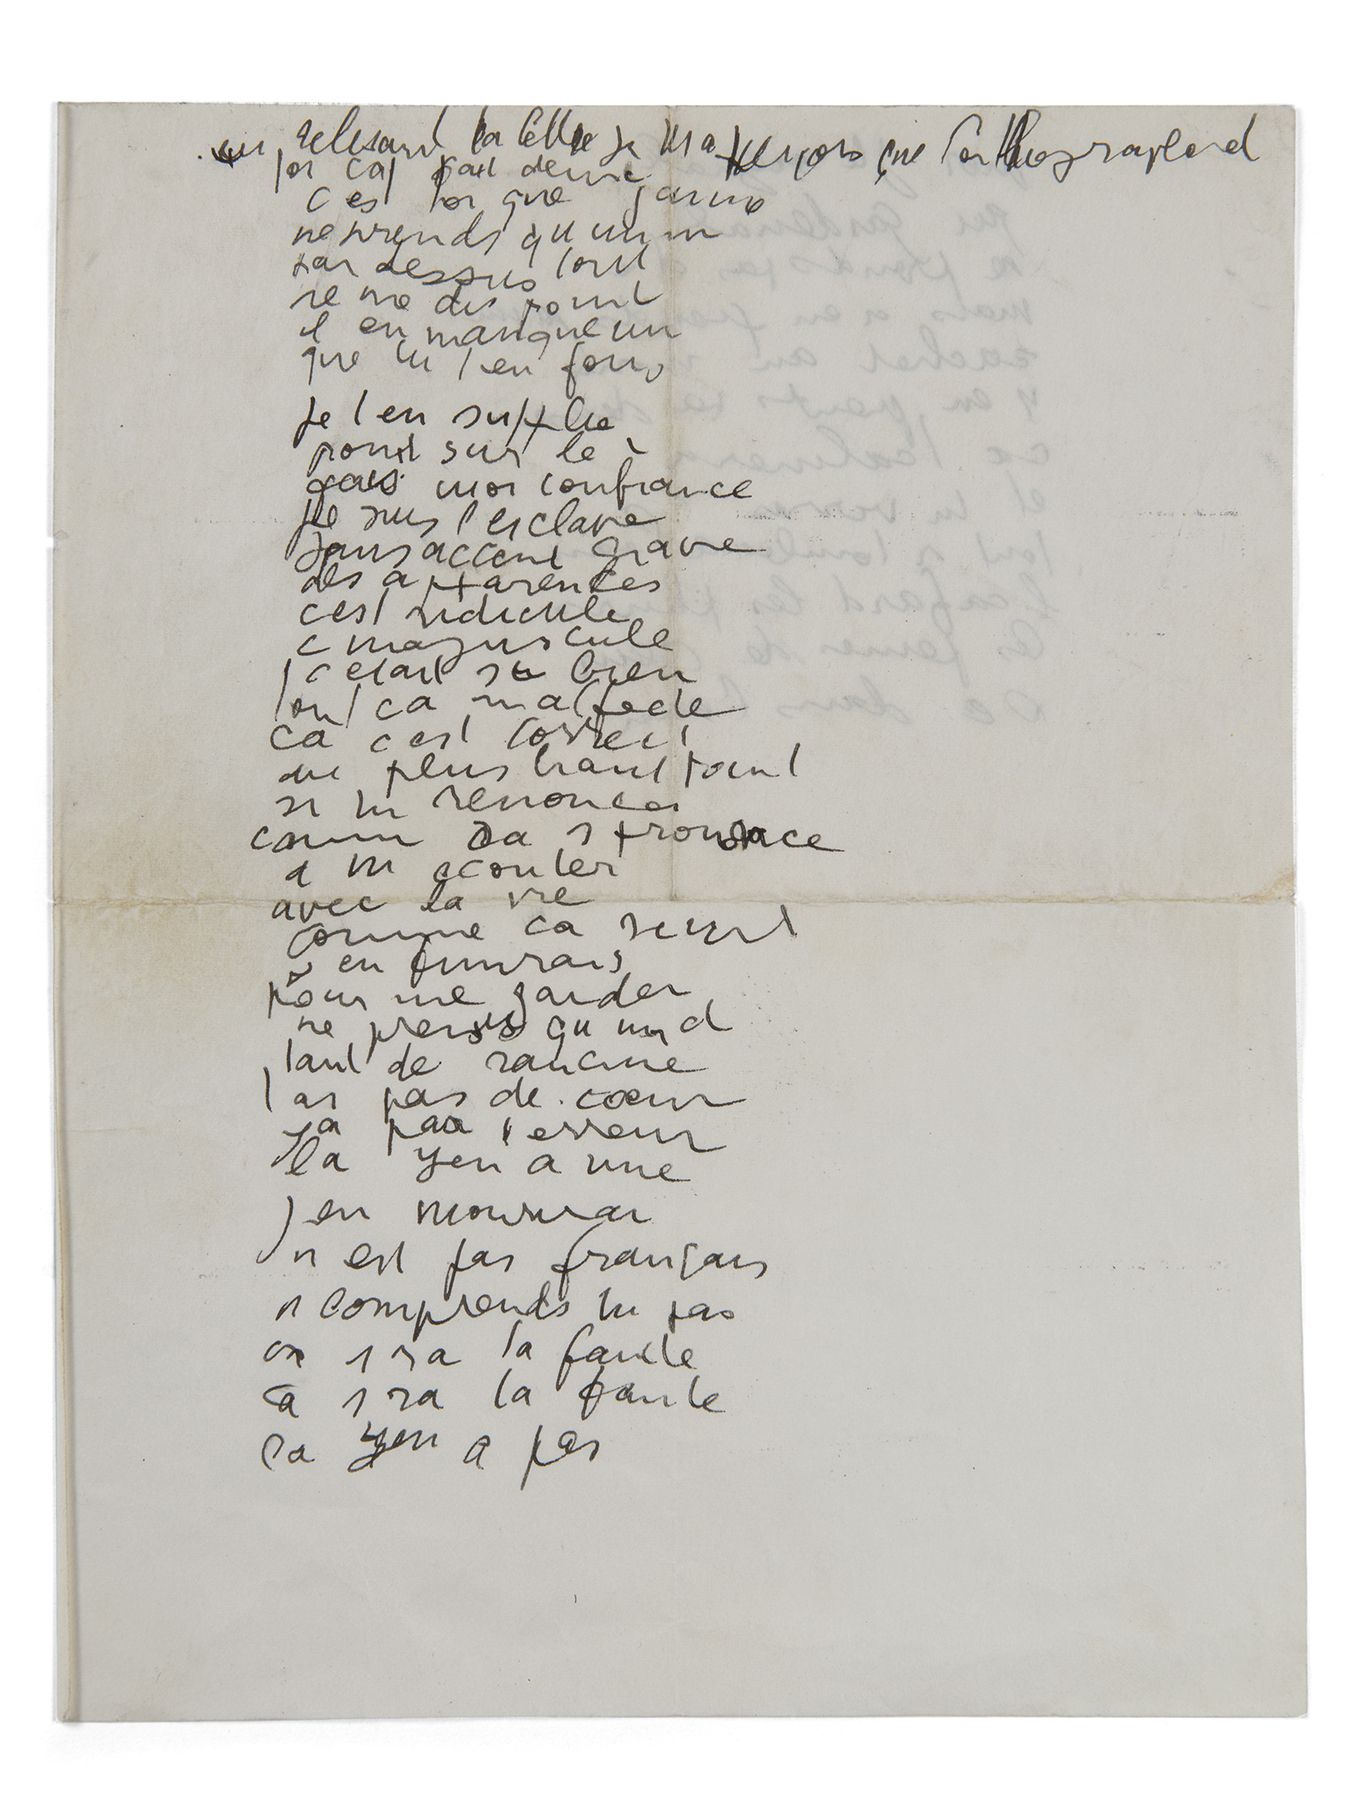 en relisant ta lettre je m aperçois que l orthographe et
toi ca fait deux
c est toi que j aime
ne prends qu un m
par dessus tout
ne me dis point
il en manque un
que tu t en fous
je t en supplie
point sur le i
fais moi confiance
je suis l esclave
sans accent grave
des apparences
c est ridicule
c majuscule
c etait si bien
tout ca m affecte
ca c est correct
au plus haut point
si tu renonces
comme ca s prononce
a m ecouter
avec la vie
comme ca s ecrit
j en finirais
pour me garder
ne prends qu un d
tant de rancune
t as pas de cœur
y a pas d erreur
la y en a une
j en mourrai
n est pas français
n comprends tu pas
ca s ra ta faute
ca s ra ta faute
la y en a pas